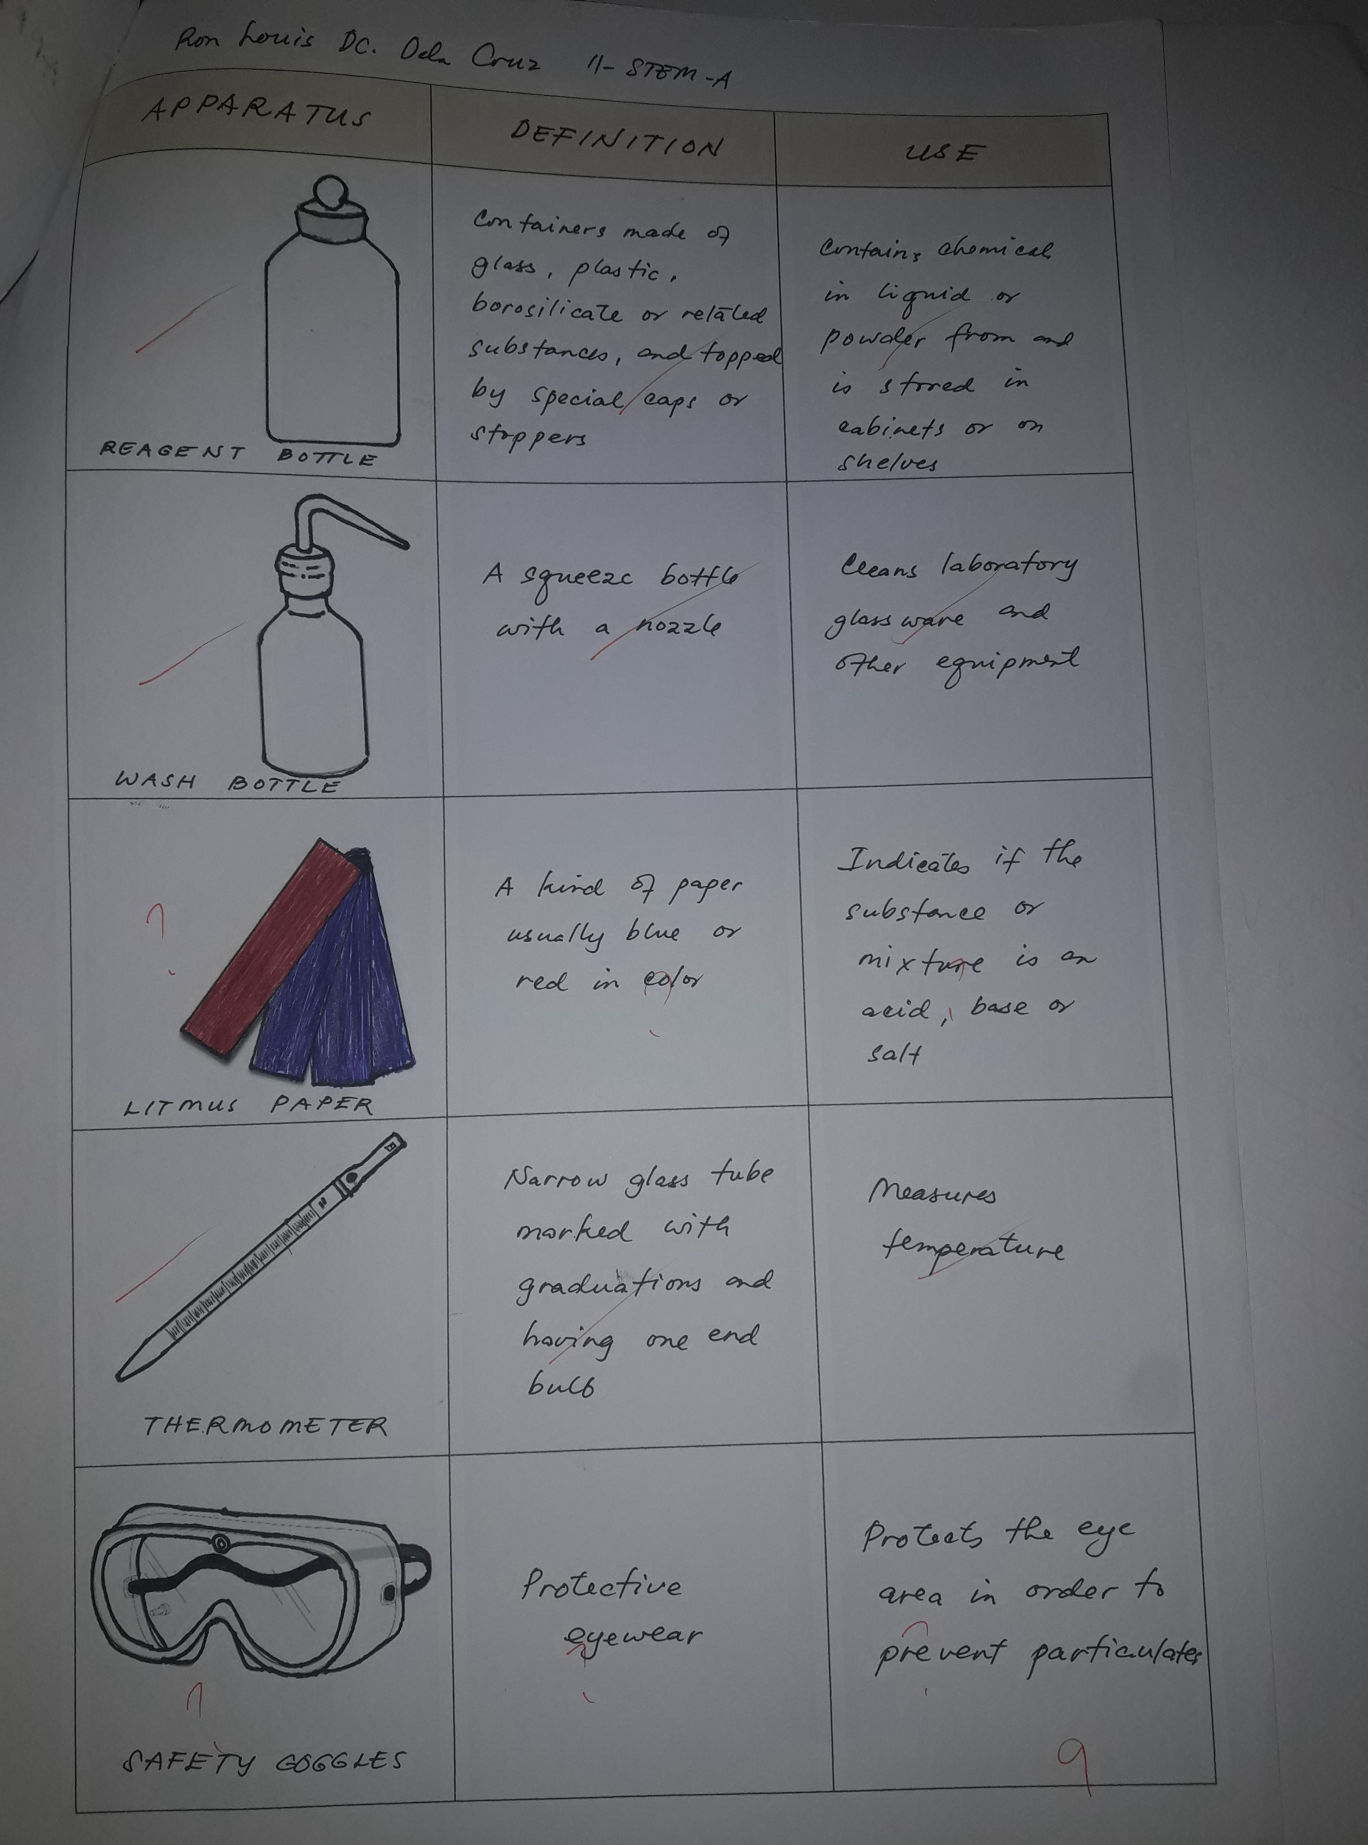 Ron Louis DC. Dela Cruz 11-STEM-A
APPARATUS
DEFINITION
USE
REAGENT BOTTLE
Containers made of
glass, plastic,
borosilicate or related
substances, and topped
by special caps or
stoppers
Contains chemicals
in liquid or
powder from and
is stored in
cabinets or on
shelves
WASH BOTTLE
A squeeze bottle
with a nozzle
Cleans laboratory
glassware and
other equipment
?
LITMUS PAPER
A kind of paper
usually blue or
red in color
Indicates if the
substance or
mixture is an
acid, base or
salt
THERMOMETER
Narrow glass tube
marked with
graduations and
having one end
bulb
Measures
temperature
SAFETY GOGGLES
Protective
eyewear
Protects the eye
area in order to
prevent particulates
9